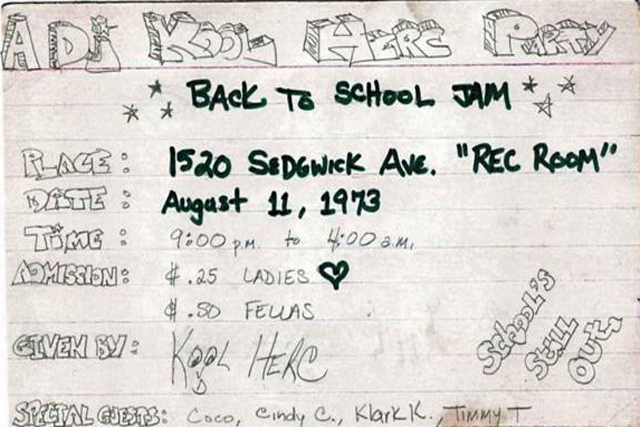 A DJ KOOL HERC PARTY
BACK TO SCHOOL JAM
PLACE: 1520 SEDGWICK AVE. "REC ROOM"
DATE: August 11, 1973
TIME: 9:00 p.m. to 4:00 a.m.
ADMISSION: $.25 LADIES ♥
$.50 FELLAS
School's
Still
Out.
GIVEN BY: KOOL HERC
SPECIAL GUESTS: Coco, Cindy C., Klark K., Timmy T